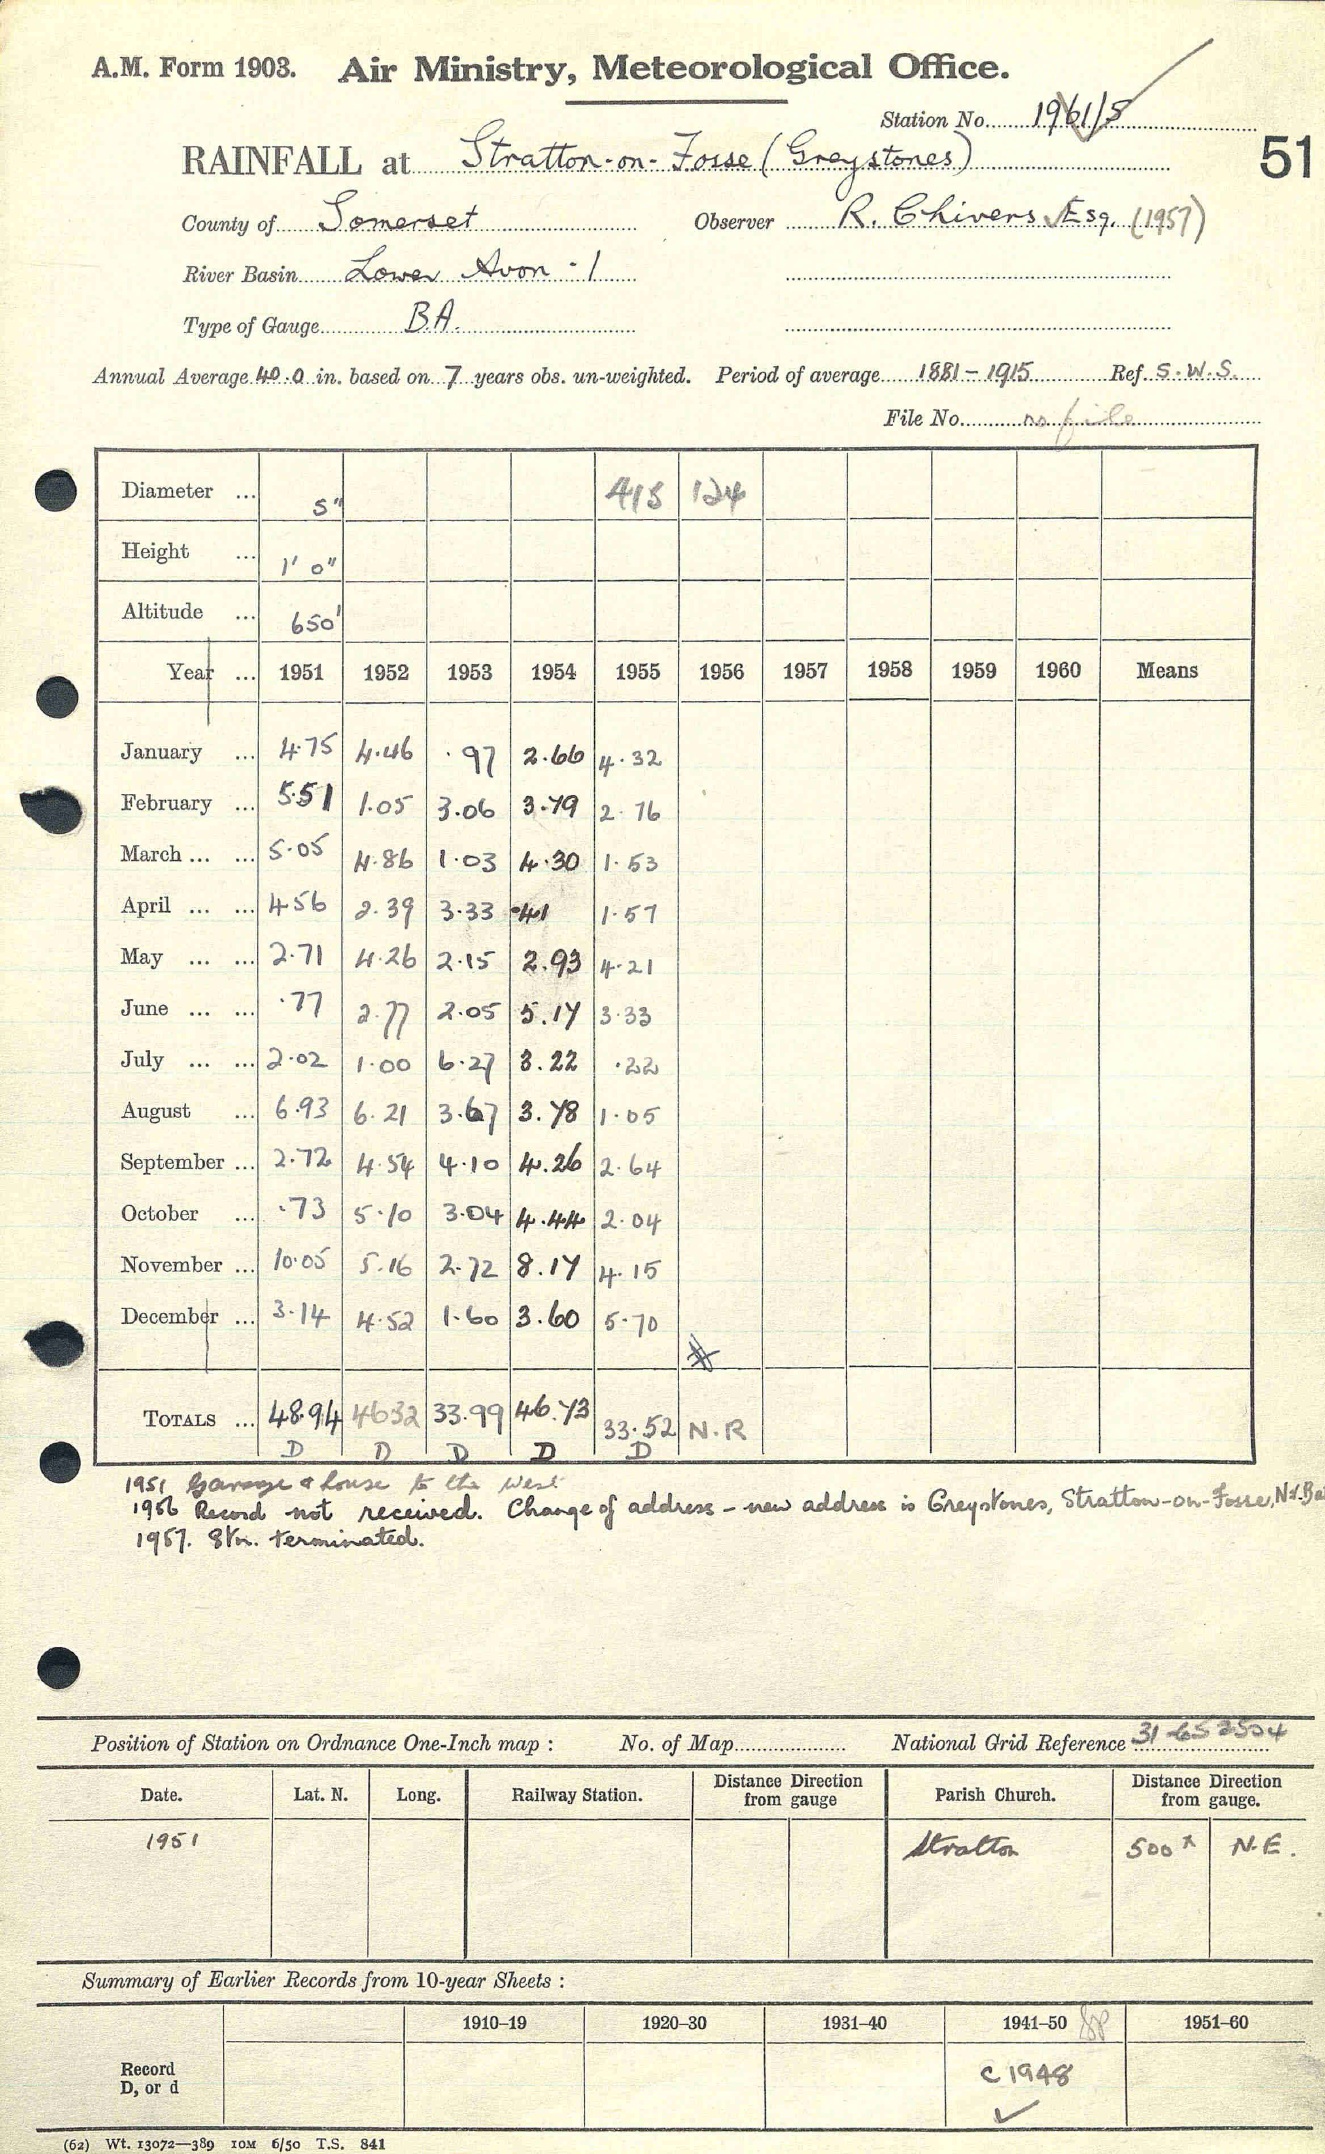 A.M. Form 1903. Air Ministry, Meteorological Office.
Station No. 1961/5
RAINFALL at Stratton-on-Fosse (Greystones)
51
County of Somerset Observer R. Chivers Esq. (1957)
River Basin Lower Avon - 1
Type of Gauge B.A.
Annual Average 40.0 in. based on 7 years obs. un-weighted. Period of average 1881-1915 Ref. S.W.S.
File No. no file
Diameter ... 5" 415 124
Height ... 1' 0"
Altitude ... 650'
Year ... 1951 1952 1953 1954 1955 1956 1957 1958 1959 1960 Means
January ... 4.75 4.46 .97 2.66 4.32
February ... 5.51 1.05 3.06 3.79 2.76
March ... ... 5.05 4.86 1.03 4.30 1.53
April ... ... 4.56 2.39 3.33 .41 1.57
May ... ... 2.71 4.26 2.15 2.93 4.21
June ... ... .77 2.77 2.05 5.17 3.33
July ... ... 2.02 1.00 6.27 3.22 .22
August ... 6.93 6.21 3.67 3.78 1.05
September ... 2.72 4.54 4.10 4.26 2.64
October ... .73 5.10 3.04 4.44 2.04
November ... 10.05 5.16 2.72 8.17 4.15
December ... 3.14 4.52 1.60 3.60 5.70
TOTALS ... 48.94 4632 33.99 46.73 33.52 N.R
D D D D D
1951 Garage & house to the West
1956 Record not received. Change of address - new address is Greystones, Stratton-on-Fosse, Nr. Ba
1957. Stn. terminated.
Position of Station on Ordnance One-Inch map : No. of Map National Grid Reference 31-652504
Date. Lat. N. Long. Railway Station. Distance Direction from gauge Parish Church. Distance Direction from gauge.
1951 Stratton 500x N.E.
Summary of Earlier Records from 10-year Sheets :
1910-19 1920-30 1931-40 1941-50 1951-60
Record D, or d C 1948
(62) Wt. 13072—389 10M 6/50 T.S. 841